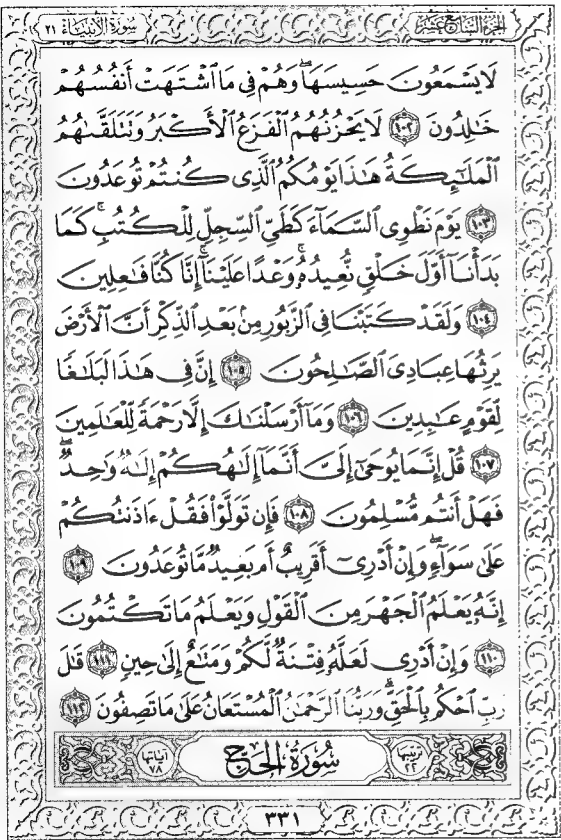 سُورَةُ الأَنبِيَاءِ ٢١
الجُزْءُ السَّابِعَ عَشَرَ
لَا يَسْمَعُونَ حَسِيسَهَا ۖ وَهُمْ فِى مَا ٱشْتَهَتْ أَنفُسُهُمْ
خَٰلِدُونَ ١٠٢ لَا يَحْزُنُهُمُ ٱلْفَزَعُ ٱلْأَكْبَرُ وَتَتَلَقَّىٰهُمُ
ٱلْمَلَٰٓئِكَةُ هَٰذَا يَوْمُكُمُ ٱلَّذِى كُنتُمْ تُوعَدُونَ
١٠٣ يَوْمَ نَطْوِى ٱلسَّمَآءَ كَطَىِّ ٱلسِّجِلِّ لِلْكُتُبِ ۚ كَمَا
بَدَأْنَآ أَوَّلَ خَلْقٍ نُّعِيدُهُۥ ۚ وَعْدًا عَلَيْنَآ ۚ إِنَّا كُنَّا فَٰعِلِينَ
١٠٤ وَلَقَدْ كَتَبْنَا فِى ٱلزَّبُورِ مِنۢ بَعْدِ ٱلذِّكْرِ أَنَّ ٱلْأَرْضَ
يَرِثُهَا عِبَادِىَ ٱلصَّٰلِحُونَ ١٠٥ إِنَّ فِى هَٰذَا لَبَلَٰغًا
لِّقَوْمٍ عَٰبِدِينَ ١٠٦ وَمَآ أَرْسَلْنَٰكَ إِلَّا رَحْمَةً لِّلْعَٰلَمِينَ
١٠٧ قُلْ إِنَّمَا يُوحَىٰٓ إِلَىَّ أَنَّمَآ إِلَٰهُكُمْ إِلَٰهٌ وَٰحِدٌ ۖ
فَهَلْ أَنتُم مُّسْلِمُونَ ١٠٨ فَإِن تَوَلَّوْا۟ فَقُلْ ءَاذَنتُكُمْ
عَلَىٰ سَوَآءٍ ۖ وَإِنْ أَدْرِىٓ أَقَرِيبٌ أَم بَعِيدٌ مَّا تُوعَدُونَ ١٠٩
إِنَّهُۥ يَعْلَمُ ٱلْجَهْرَ مِنَ ٱلْقَوْلِ وَيَعْلَمُ مَا تَكْتُمُونَ
١١٠ وَإِنْ أَدْرِى لَعَلَّهُۥ فِتْنَةٌ لَّكُمْ وَمَتَٰعٌ إِلَىٰ حِينٍ ١١١ قَٰلَ
رَبِّ ٱحْكُم بِٱلْحَقِّ ۗ وَرَبُّنَا ٱلرَّحْمَٰنُ ٱلْمُسْتَعَانُ عَلَىٰ مَا تَصِفُونَ ١١٢
ترتيبها ٢٢
سُورَةُ الحَجِّ
آياتها ٧٨
٣٣١